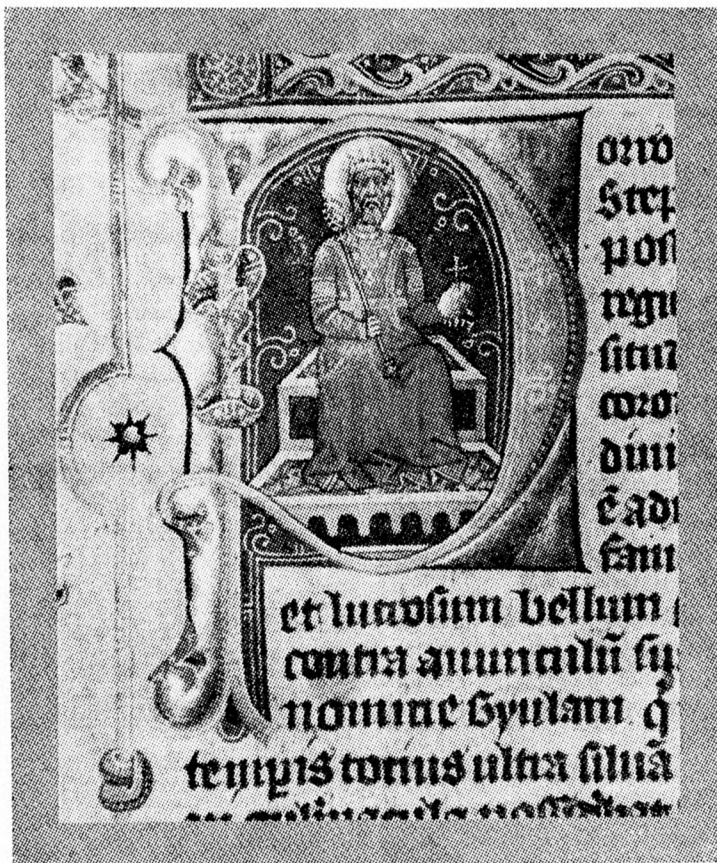 Porro
Step
post
regi
situ
coro
diui
ē ad
fam
et lucrosum bellum
contra auunculū su
nomine Gyulam q̄
temp̄is totius ultra siluā